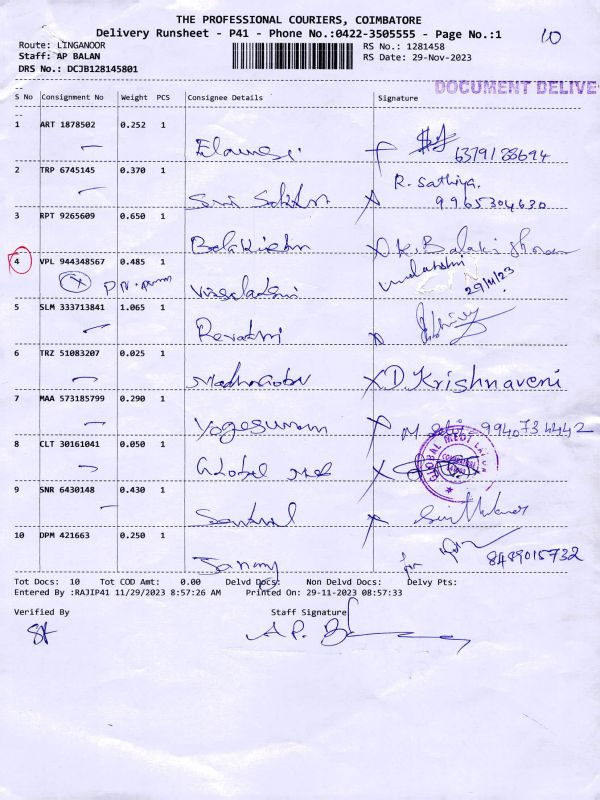 THE PROFESSIONAL COURIERS, COIMBATORE
Delivery Runsheet - P41 - Phone No.:0422-3505555 - Page No.:1
10
Route: LINGANOOR
RS No.: 1281458
Staff: AP BALAN
RS Date: 29-Nov-2023
DRS No.: DCJB128145801
DOCUMENT DELIVE
S No Consignment No Weight PCS Consignee Details Signature
1 ART 1878502 0.252 1
6379188694
2 TRP 6745145 0.370 1
R. Sathiya.
9965304630
3 RPT 9265609 0.650 1
Balakrishn
4 VPL 944348567 0.485 1
29/11/23
5 SLM 333713841 1.065 1
Revathi
6 TRZ 51083207 0.025 1
D. Krishnaveni
7 MAA 573185799 0.290 1
9940734442
8 CLT 30161041 0.050 1
Global Med
GLOBAL MEDI
9 SNR 6430148 0.430 1
10 DPM 421663 0.250 1
8489015732
Tot Docs: 10 Tot COD Amt: 0.00 Delvd Docs: Non Delvd Docs: Delvy Pts:
Entered By :RAJIP41 11/29/2023 8:57:26 AM Printed On: 29-11-2023 08:57:33
Verified By Staff Signature